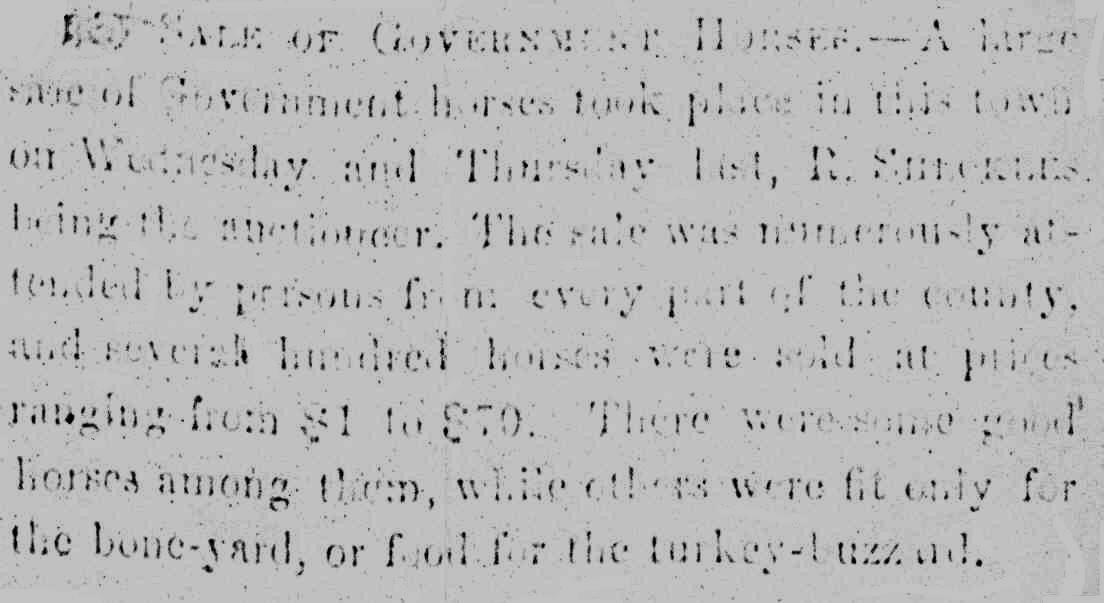 SALE OF GOVERNMENT HORSES.—A large
sale of Government horses took place in this town
on Wednesday and Thursday last, R.
being the auctioneer. The sale was numerously at-
tended by persons from every part of the county,
and several hundred horses were sold at prices
ranging from $1 to $70. There were some good
horses among them, while others were fit only for
the bone-yard, or food for the turkey-buzzard.